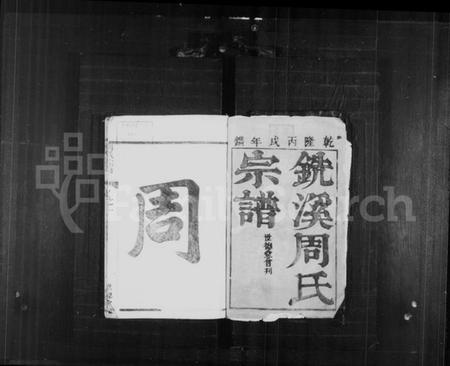 乾隆丙戌年鐫
銚溪周氏
宗譜
世德堂重刊
周
FamilySearch